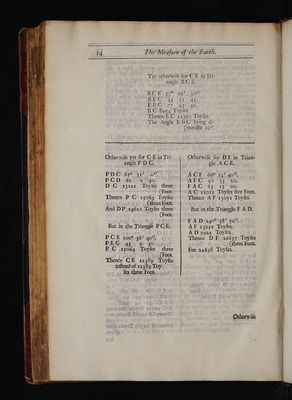 14 The Measure of the Earth.
Yet otherwise for C E in Tri-
angle B C E.
B C E 57° 19'. 30".
B E C 43 51 45.
E B C 77 43 45.
B C 8954 Toyses.
Thence E C 12390 Toyses.
The Angle E B C being di-
(minisht 10".
Otherwise yet for C E in Tri-
angle P D C.
P C D 62 2 40.
D C 13121 Toyses three
(Foot.
Thence P C 15064 Toyses
(three Foot.
And D P 14621 Toyses three
(Foot.
But in the Triangle P C E.
P C E 102° 36' 40".
P E C 43 9 30.
P C 15064 Toyses three
(Foot.
Thence C E 12389 Toyses
instead of 12389 Toy-
ses three Foot.
Otherwise for D F in Trian-
gle A C E.
A C F 66° 13' 40".
F A C 65 13 00.
A C 11012 Toyses five Foot.
Thence A F 13051 Toyses.
But in the Triangle F A D.
F A D 140° 38' 50".
A F 13051 Toyses.
A D 9922 Toyses.
(three Foot.
Otherwise